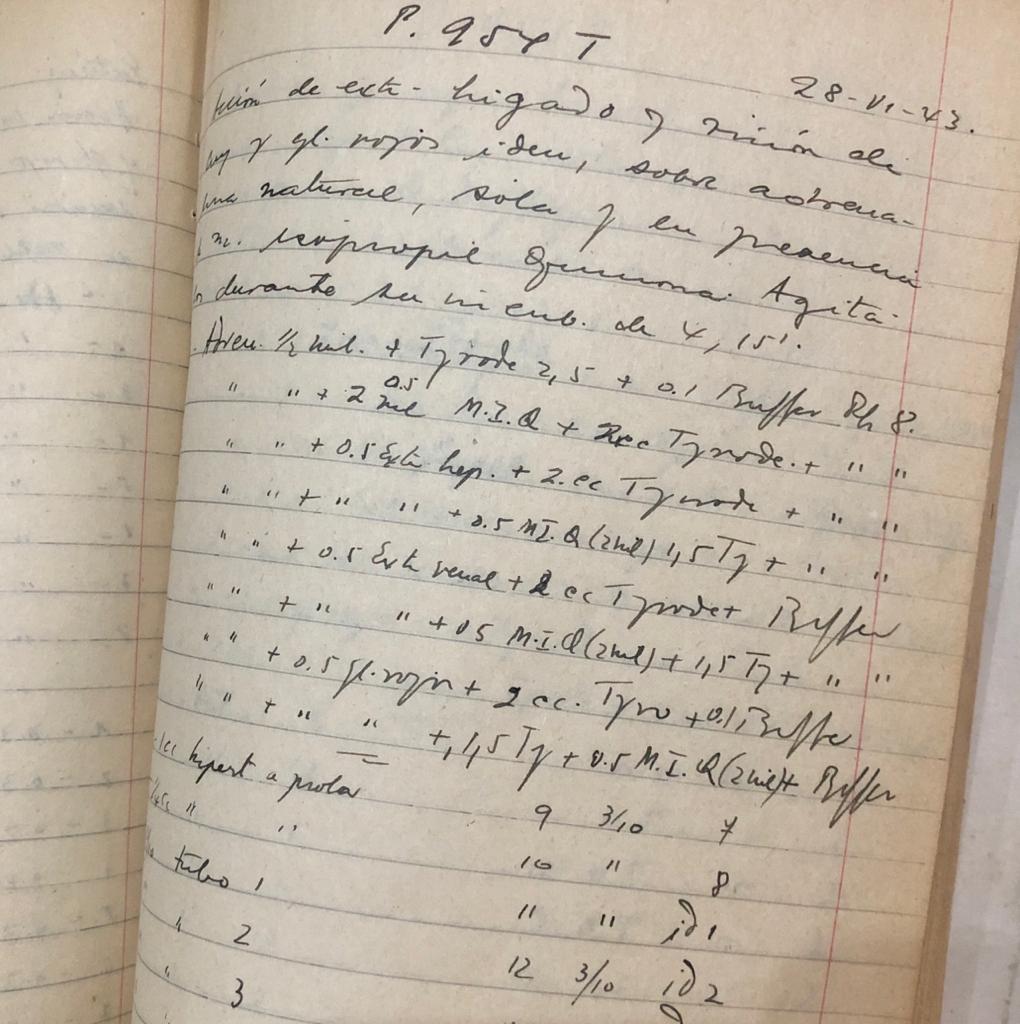 P. 954 T
28-VI-43.
ción de ext. hígado y riñón de
y gl. rojos idem, sobre adrena-
natural, sola y en presencia
m. isopropil Quinona. Agita-
durante su incub. de 4, 15'.
Adren. ½ mil. + Tyrode 2,5 + 0.1 Buffer Ph 8.
" " + 2 mil 0.5 M.I.Q + 2cc Tyrode. + " "
" " + 0.5 Extr hep. + 2.cc Tyrode + " "
" " + " " + 0.5 M.I.Q (2mil) 1,5 Ty + " "
" " + 0.5 Extr renal + 2 cc Tyrode + Buffer
" " + " " + 05 M.I.Q (2mil) + 1,5 Ty + " "
" " + 0.5 gl. rojos + 2 cc. Tyro + 0.1 Buffer
" " + " " +, 1,5 Ty + 0.5 M.I.Q (2mil) + Buffer
1cc hipert a
" " 9 3/10 7
tubo 1 10 " 8
" 2 11 " id 1
" 3 12 3/10 id 2